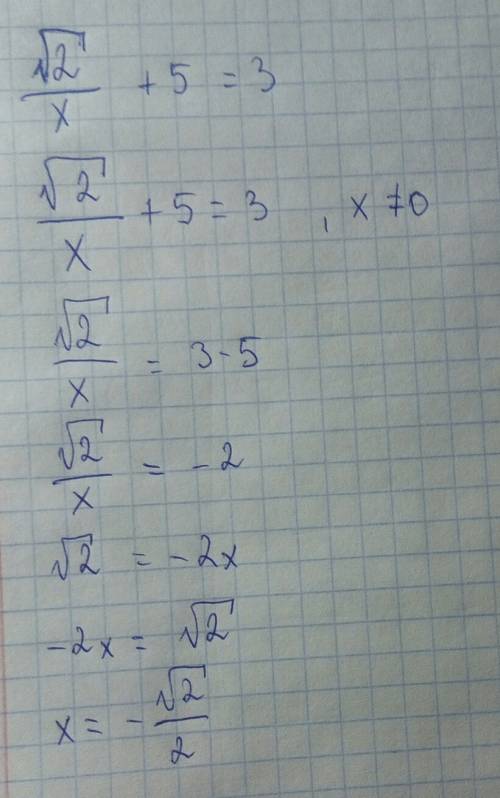 √2/x + 5 = 3
√2/x + 5 = 3 , x ≠ 0
√2/x = 3 - 5
√2/x = - 2
√2 = - 2x
- 2x = √2
x = - √2/2